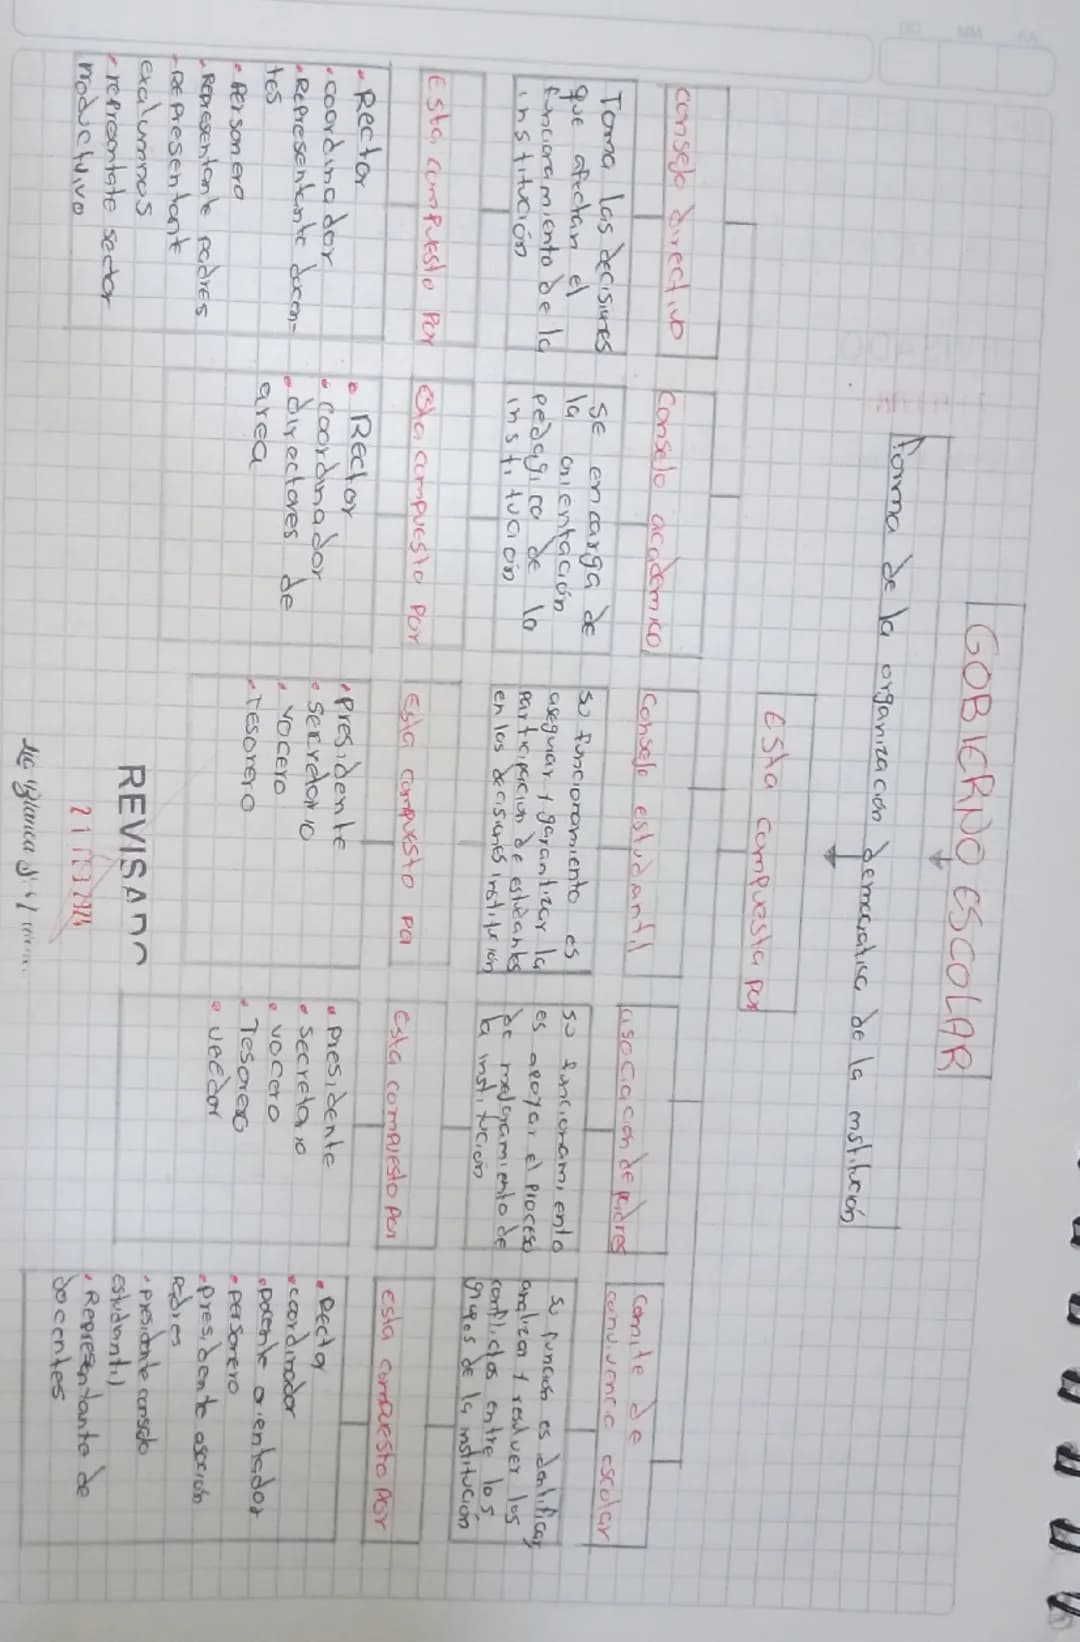 GOBIERNO ESCOLAR
forma de la organización democratica de la institución
Esta compuesta por
consejo directivo
Toma las decisiones
que afectan el
funcionamiento de la
institución
Esta compuesto por
• Rector
• coordinador
• Representante docen-
tes
• Personero
• Representante padres
• Representante
exalumnos
• reprentate sector
productivo
Consejo academico
se encarga de
la orientación
pedagica de la
institución
esta compuesto por
• Rector
• coordinador
• directores de
area
Consejo estudiantil
su funcionamiento es
asegurar y garantizar la
participación de estudiantes
en las decisiones institución
Esta compuesto por
• presidente
• secretario
• vocero
• Tesorero
asociación de padres
su funcionamiento
es apoyar el proceso
de mejoramiento de
la institución
Esta compuesto por
• presidente
• secretario
• vocero
• Tesorero
• veedor
comite de
convivencia escolar
su función es identificar,
analizar y resolver los
conflictos entre los
grupos de la institución
esta compuesto por
• Rector
• coordinador
• Docente orientador
• personero
• presidente asocion
padres
• presidente consejo
estudiantil
• Representante de
docentes
REVISADO